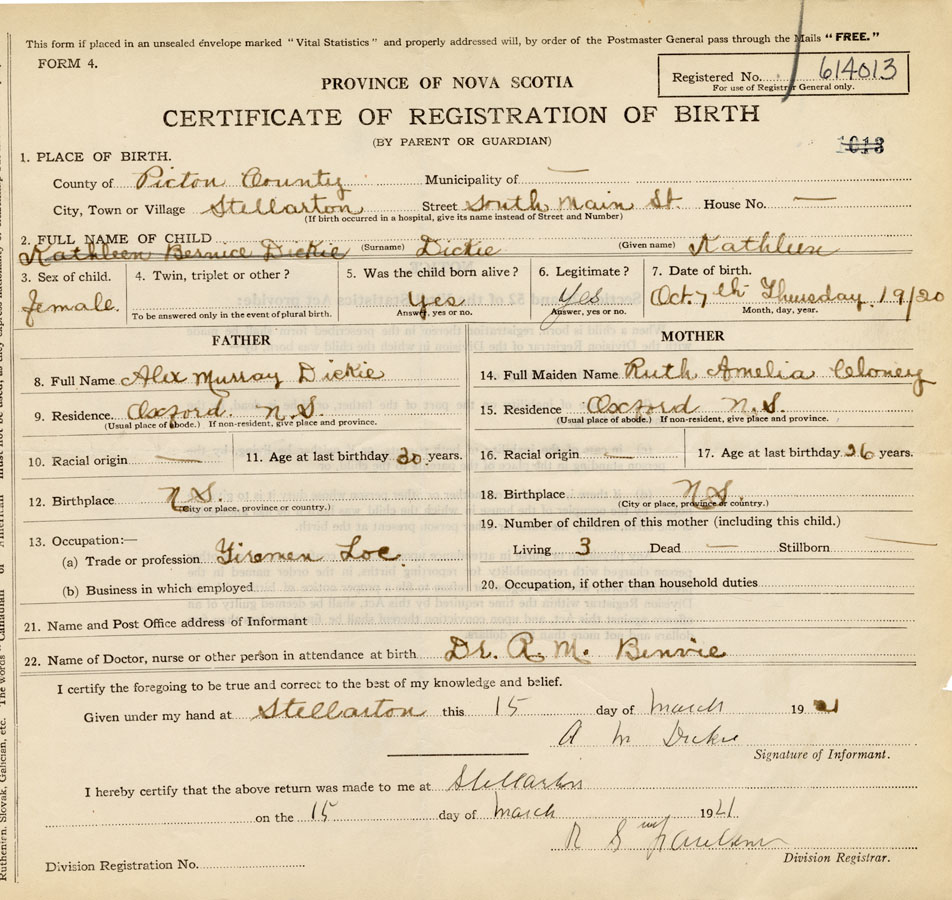 This form if placed in an unsealed envelope marked "Vital Statistics" and properly addressed will, by order of the Postmaster General pass through the Mails "FREE."
FORM 4.
PROVINCE OF NOVA SCOTIA
Registered No. 614013
For use of Registrar General only.
CERTIFICATE OF REGISTRATION OF BIRTH
(BY PARENT OR GUARDIAN)
1013
1. PLACE OF BIRTH.
County of Picton County Municipality of —
City, Town or Village Stellarton Street South Main St. House No. —
(If birth occurred in a hospital, give its name instead of Street and Number)
2. FULL NAME OF CHILD
Kathleen Bernice Dickie (Surname) Dickie (Given name) Kathleen
3. Sex of child. 4. Twin, triplet or other? 5. Was the child born alive? 6. Legitimate? 7. Date of birth.
female. Yes Yes Oct. 7th Thursday. 19/20
To be answered only in the event of plural birth. Answer, yes or no. Answer, yes or no. Month, day, year.
FATHER
8. Full Name Alex Murray Dickie
9. Residence. Oxford. N.S.
(Usual place of abode.) If non-resident, give place and province.
10. Racial origin — 11. Age at last birthday 30 years.
12. Birthplace N.S.
(City or place, province or country.)
13. Occupation:—
(a) Trade or profession Firemen Loc.
(b) Business in which employed
MOTHER
14. Full Maiden Name Ruth Amelia Cloney
15. Residence Oxford N.S.
(Usual place of abode.) If non-resident, give place and province.
16. Racial origin — 17. Age at last birthday 26 years.
18. Birthplace N.S.
(City or place, province or country.)
19. Number of children of this mother (including this child.)
Living 3 Dead — Stillborn —
20. Occupation, if other than household duties
21. Name and Post Office address of Informant
22. Name of Doctor, nurse or other person in attendance at birth Dr. R. M. Benvie
I certify the foregoing to be true and correct to the best of my knowledge and belief.
Given under my hand at Stellarton this 15 day of March 19
A M Dickie
Signature of Informant.
I hereby certify that the above return was made to me at Stellarton
on the 15 day of March 1921.
R S
Division Registrar.
Division Registration No.